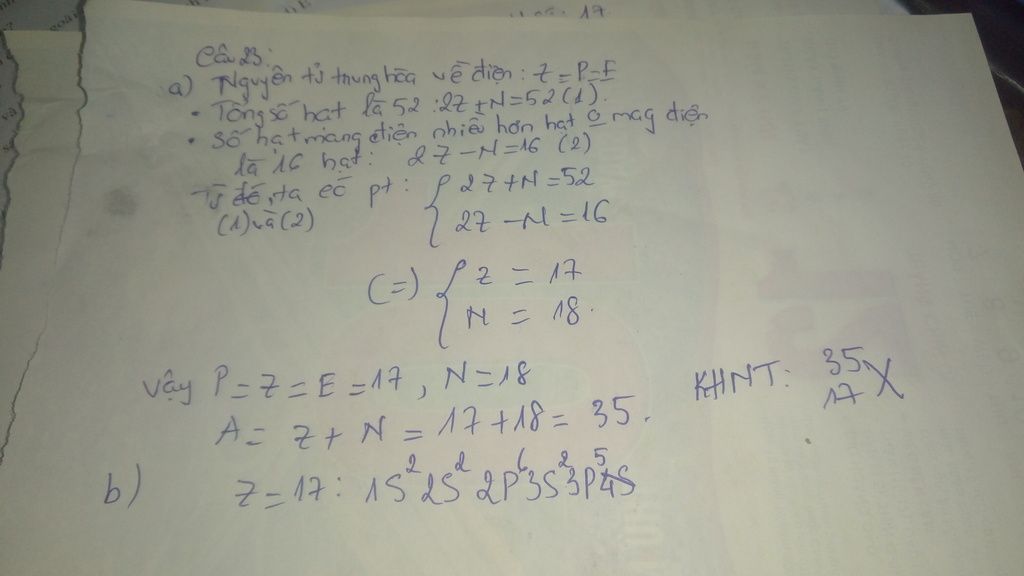 17
Câu 23:
a) Nguyên tử trung hòa về điện: Z = P = E
• Tổng số hạt là 52: 2Z + N = 52 (1).
• Số hạt mang điện nhiều hơn hạt o mag điện
là 16 hạt: 2Z - N = 16 (2)
Từ đó, ta có pt: { 2Z + N = 52
(1) và (2) 2Z - N = 16
(=) { Z = 17
N = 18.
vậy P = Z = E = 17, N = 18
KHNT: ³⁵₁₇X
A = Z + N = 17 + 18 = 35.
b) Z = 17: 1S² 2S² 2P⁶ 3S² 3P⁵